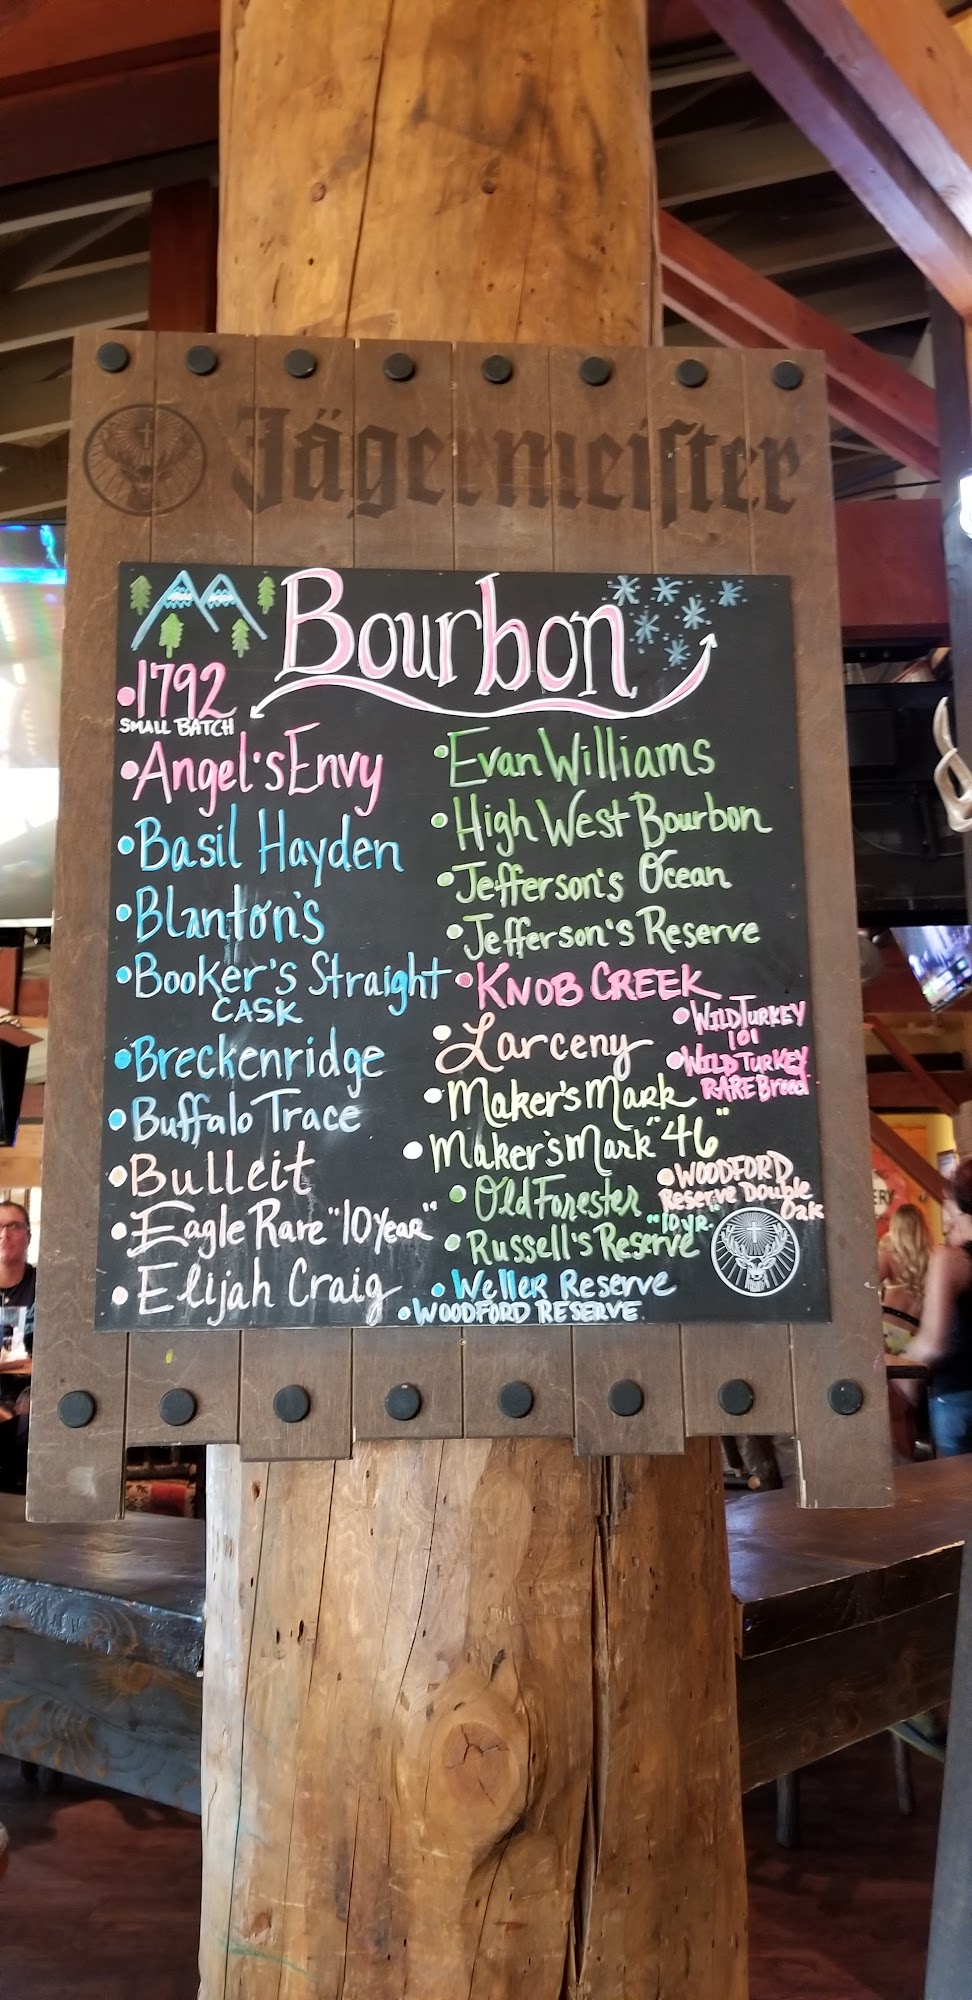 Jägermeister
Bourbon
•1792
SMALL BATCH
•Angel's Envy
•Basil Hayden
•Blanton's
•Booker's Straight
CASK
•Breckenridge
•Buffalo Trace
•Bulleit
•Eagle Rare "10 Year"
•Elijah Craig
•Evan Williams
•High West Bourbon
•Jefferson's Ocean
•Jefferson's Reserve
•KNOB CREEK
•Larceny
•Maker's Mark
•Maker's Mark "46"
•Old Forester
•Russell's Reserve "10 yr."
•Weller Reserve
•WOODFORD RESERVE
•WILD TURKEY
101
•WILD TURKEY
RARE Breed
•WOODFORD
Reserve Double
Oak